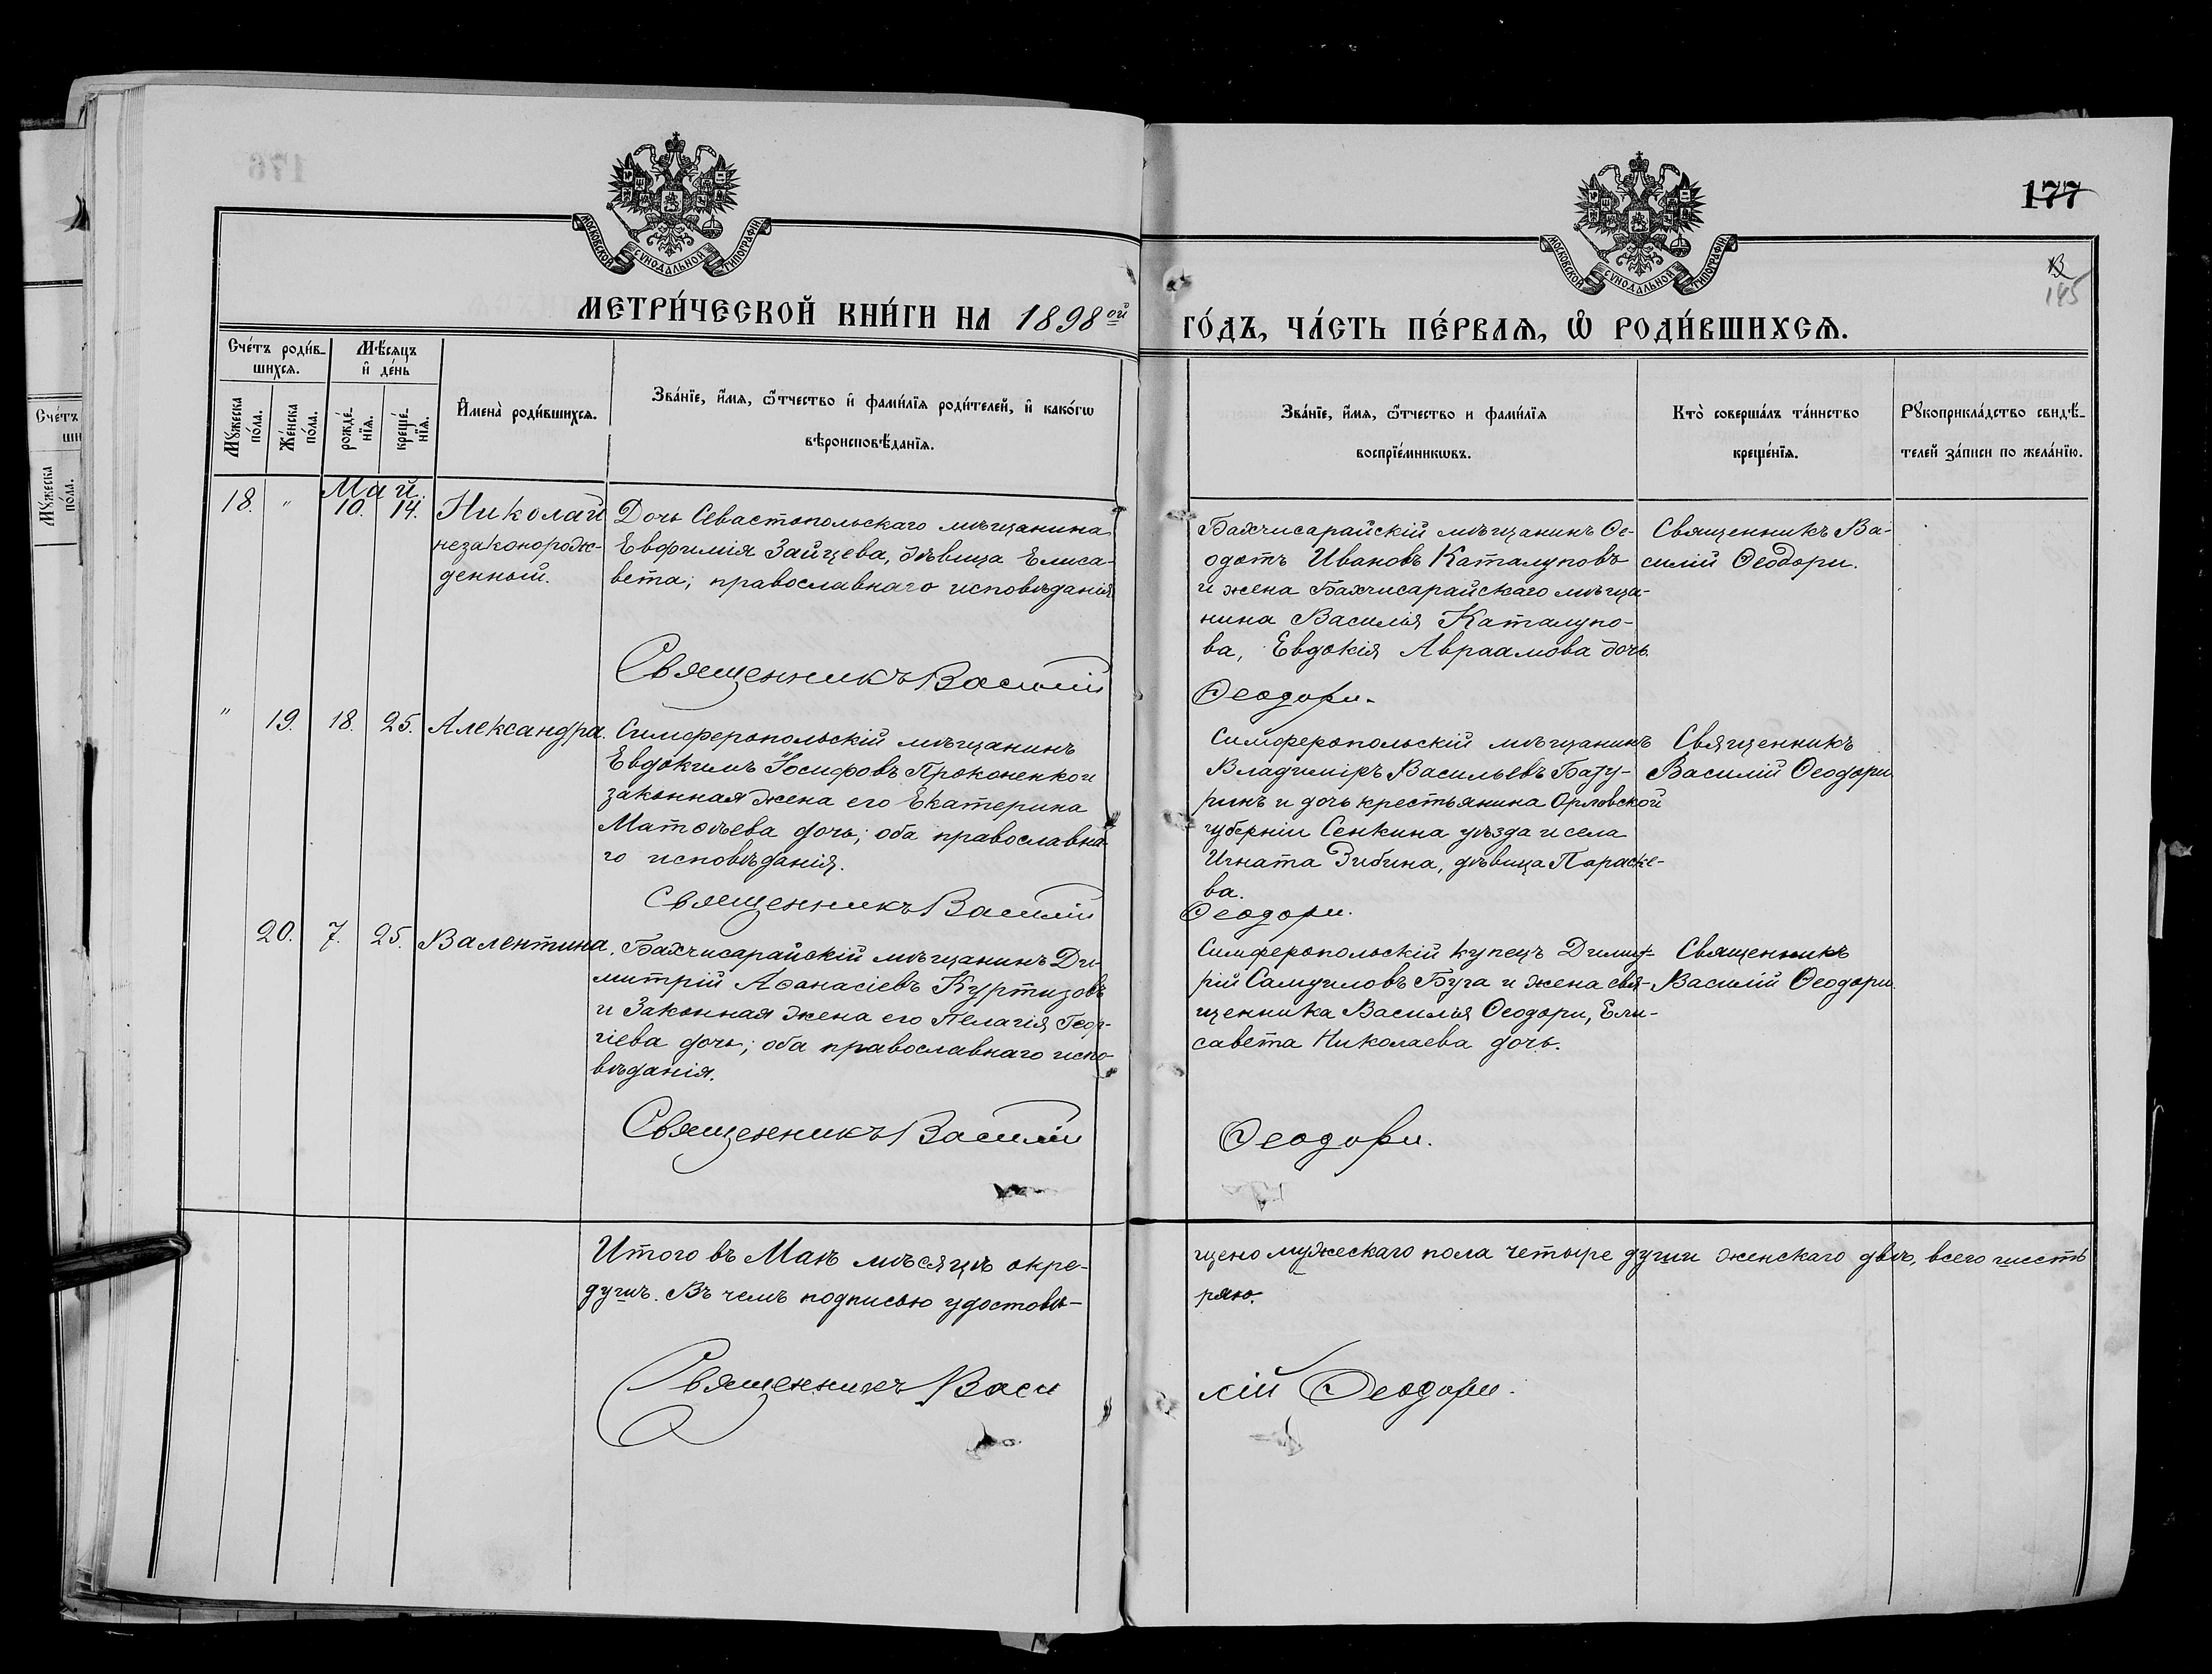 177
В
145
МОСКОВСКОЙ СУНОДАЛЬНОЙ ТИПОГРАФІИ
МОСКОВСКОЙ СУНОДАЛЬНОЙ ТИПОГРАФІИ
МЕТРИ́ЧЕСКОЙ КНИ́ГИ НА 1898ой
ГО́ДЪ, ЧА́СТЬ ПЕ́РВАѦ, Ѿ РОДИ́ВШИХСѦ.
Сче́тъ роди́в-
шихсѧ.
Мѣ́сѧцъ
и҆ де́нь
Мꙋ́жеска
по́ла.
Же́нска
по́ла.
рожде́-
нїѧ.
креще́-
нїѧ.
И҆мена̀ роди́вшихсѧ.
Зва́нїе, и҆́мѧ, ѻ҆́тчество и҆ фами́лїѧ роди́телей, и҆ како́гѡ
вѣроисповѣ́данїѧ.
Зва́нїе, и҆́мѧ, ѻ҆́тчество и фами́лїѧ
воспрїе́мникѡвъ.
Кто̀ соверша́лъ та́инство
креще́нїѧ.
Рꙋкоприкла́дство свидѣ́-
телей за́писи по жела́нїю.
Май.
18. " 10. 14. Николай
незаконорож-
денный.
Дочь Севастопольскаго мѣщанина
Евфимія Зайцева, дѣвица Елиса-
вета; православнаго исповѣданія
Священникъ Василій
Бахчисарайскій мѣщанинъ Ѳе-
одотъ Ивановъ Каталуповъ
и жена Бахчисарайскаго мѣща-
нина Василія Каталупо-
ва, Евдокія Авраамова дочь.
Ѳеодори.
Священникъ Ва-
силій Ѳеодори.
" 19. 18. 25. Александра.
Симферопольскій мѣщанинъ
Евдокимъ Іосифовъ Прокопенко и
законная жена его Екатерина
Матѳѣева дочь; оба православна-
го исповѣданія.
Священникъ Василій
Симферопольскій мѣщанинъ
Владиміръ Васильевъ Бату-
ринъ и дочь крестьянина Орловской
губерніи Сенкина уѣзда и села
Игната Зибина, дѣвица Параске-
ва.
Ѳеодори.
Священникъ
Василій Ѳеодори.
20. 7. 25. Валентина.
Бахчисарайскій мѣщанинъ Ди-
митрій Аѳанасіевъ Куртизовъ
и Законная жена его Пелагія Геор-
гіева дочь; оба православнаго испо-
вѣданія.
Священникъ Василій
Симферопольскій купецъ Димит-
рій Самуиловъ Буга и жена свя-
щенника Василія Ѳеодори, Ели-
савета Николаева дочь.
Ѳеодори.
Священникъ
Василій Ѳеодори.
Итого въ Маѣ мѣсяцѣ окре-
щено мужескаго пола четыре души женскаго двѣ, всего шесть
душъ. Въ чемъ подписью удостовѣ-
ряю.
Священникъ Васи
лій Ѳеодори.
Сче́тъ
ши
Мꙋ́жеска
по́ла.